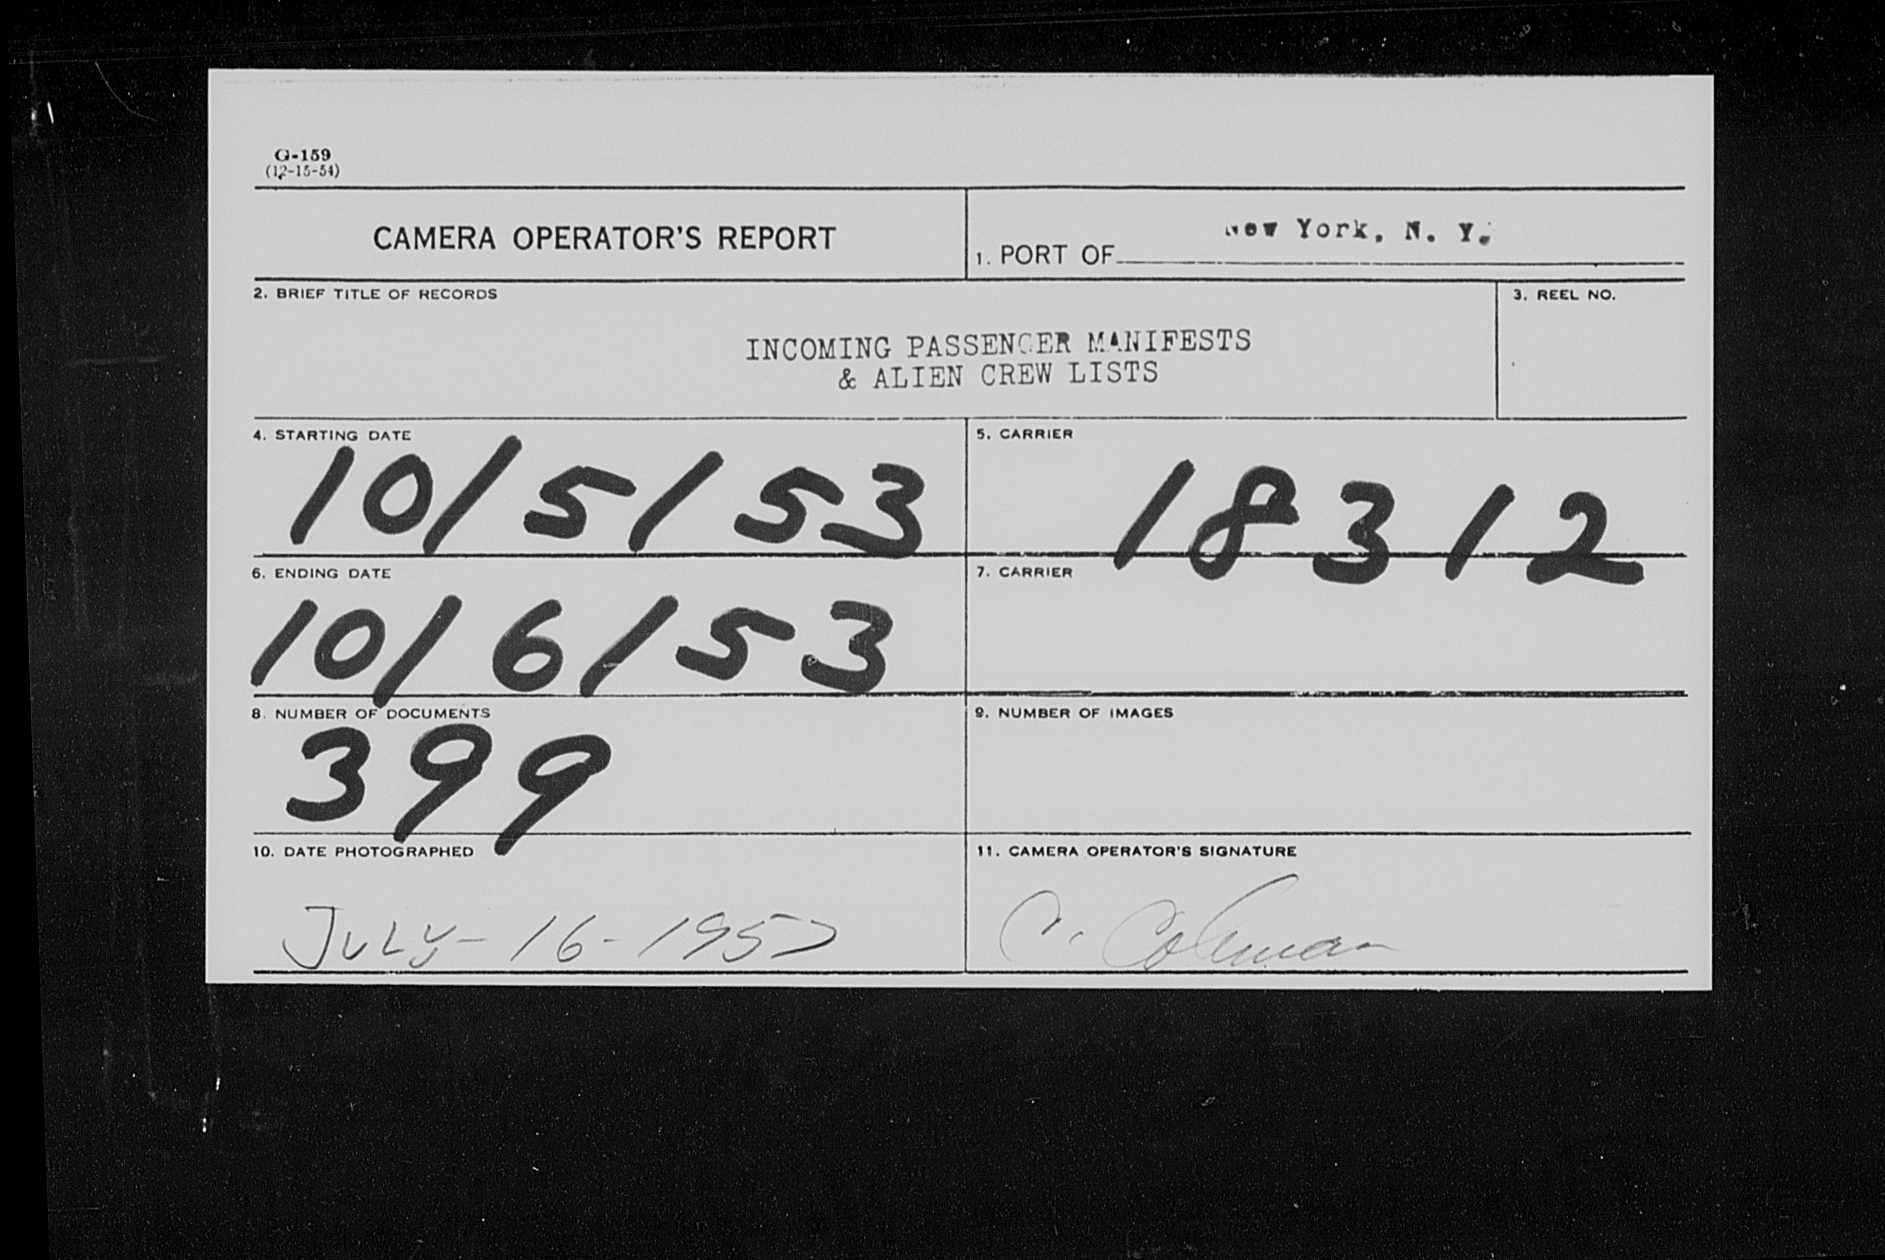 G-159
(12-15-54)
CAMERA OPERATOR'S REPORT
1. PORT OF New York, N. Y.
2. BRIEF TITLE OF RECORDS
INCOMING PASSENGER MANIFESTS
& ALIEN CREW LISTS
3. REEL NO.
4. STARTING DATE
10/5/53
5. CARRIER
18312
6. ENDING DATE
10/6/53
7. CARRIER
8. NUMBER OF DOCUMENTS
399
9. NUMBER OF IMAGES
10. DATE PHOTOGRAPHED
JULY-16-1957
11. CAMERA OPERATOR'S SIGNATURE
C. Coleman